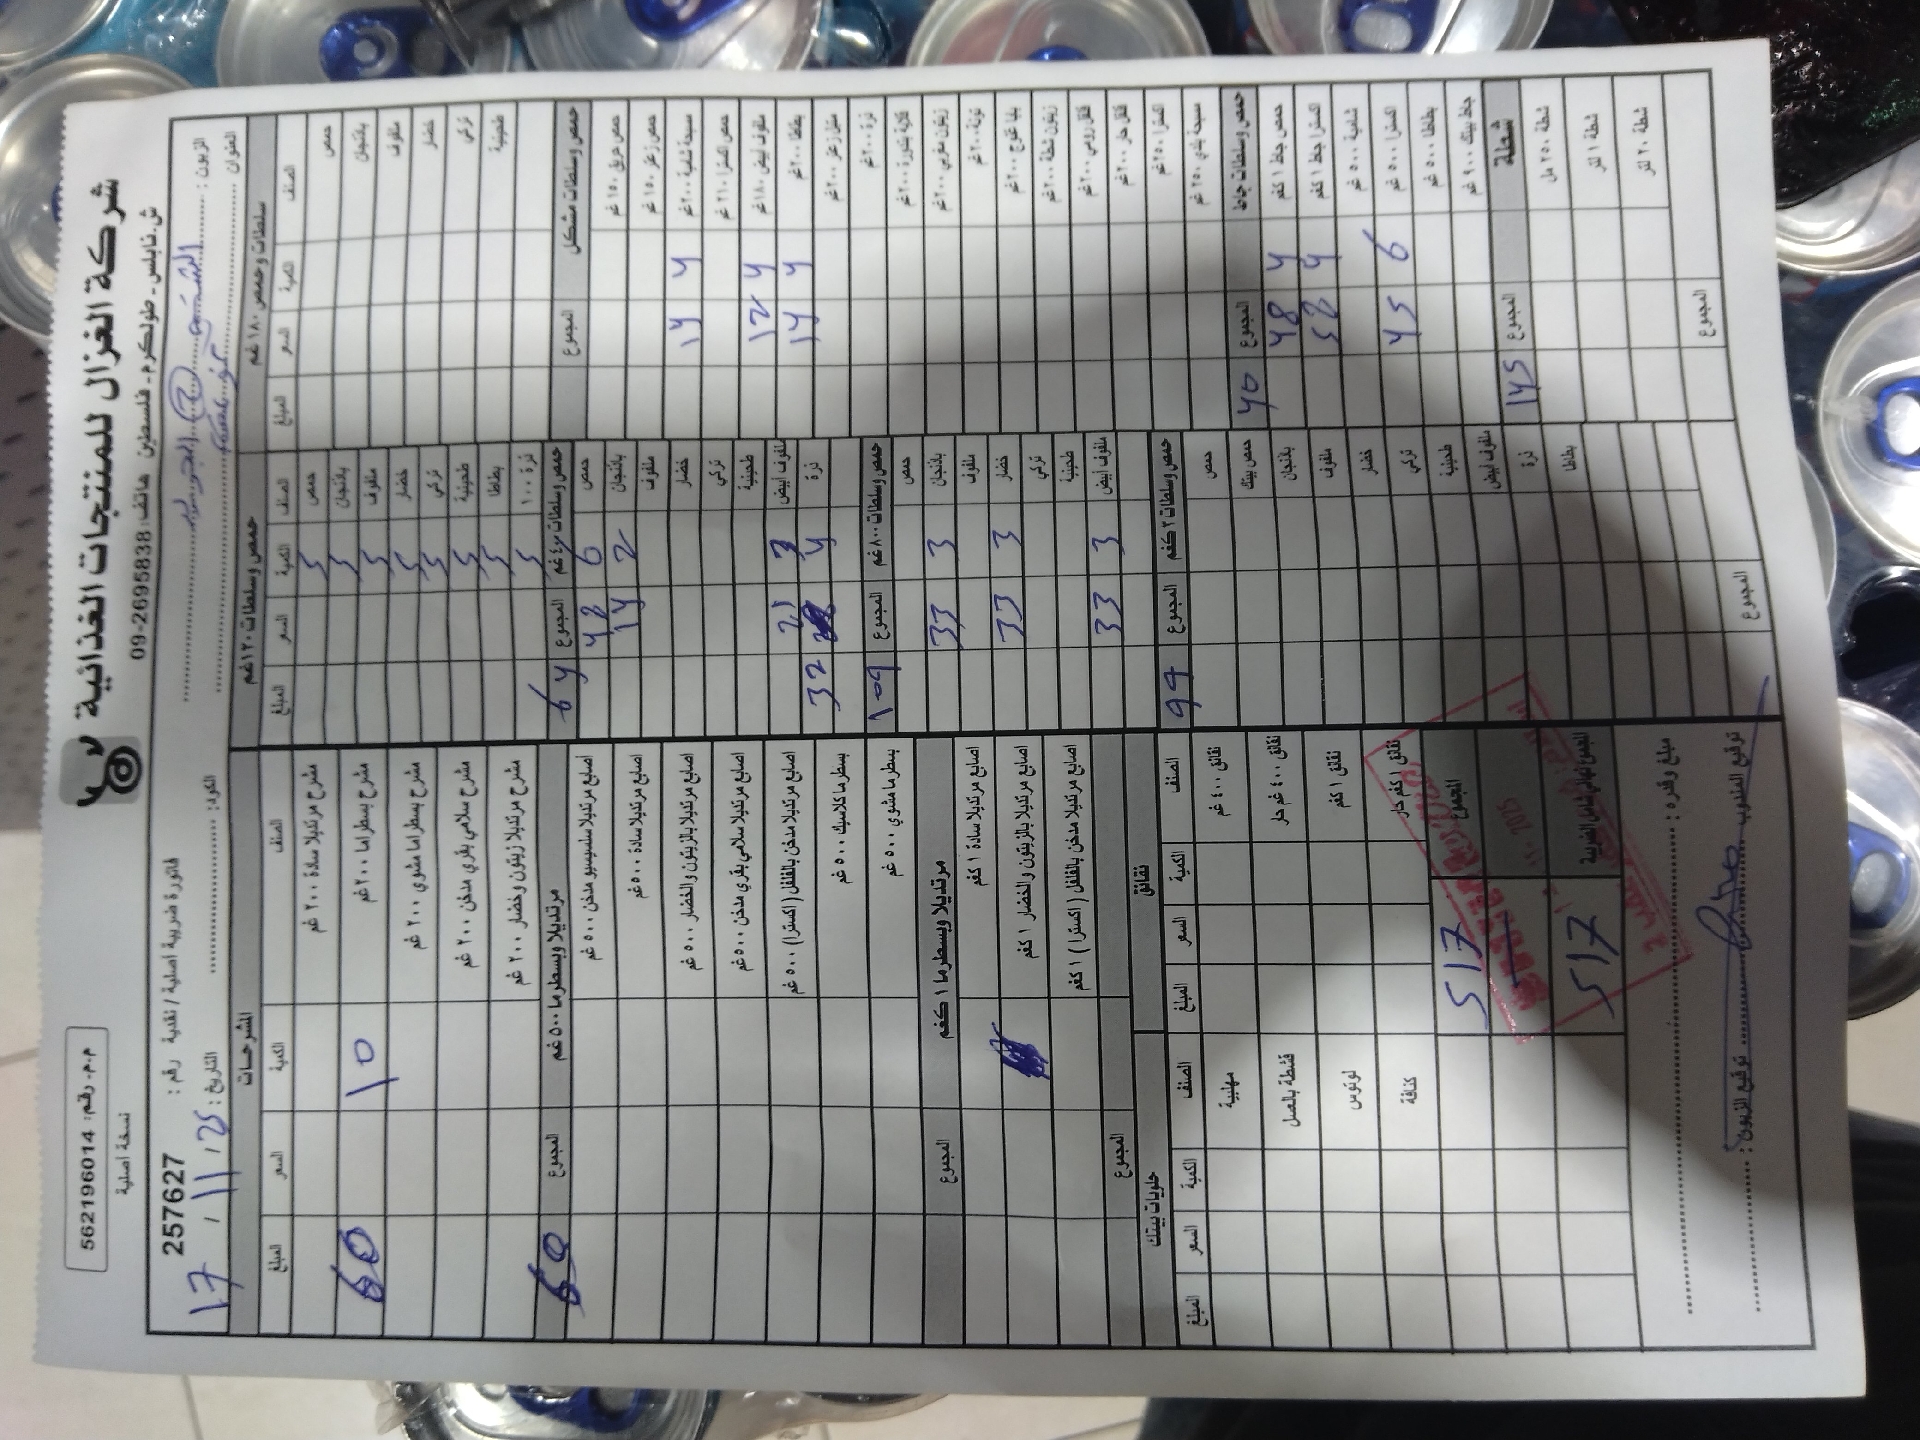 شركة الغزال للمنتجات الغذائية
ش. نابلس - طولكرم - فلسطين هاتف: 2695838-09
م.م. رقم: 562196014
نسخة أصلية
فاتورة ضريبية أصلية / نقدية رقم: 257627
الزبون:
العنوان
الكود:
التاريخ: 17 / 11 / 25
سلطات وحمص ١٨٠ غم
الصنف الكمية السعر المبلغ
حمص
باذنجان
ملفوف
خضار
تركي
طحينية
حمص وسلطات مشكل المجموع
حمص عريق ١٥٠ غم
حمص زعتر ١٥٠ غم
مسبحة شامية ٢٠٠ غم 4 14
حمص اكسترا ٢١٠ غم
ملفوف ابيض ١٨٠ غم 4 12
بطاطا ٢٠٠ غم 4 14
ذرة ٢٠٠ غم
متبل زعتر ٢٠٠ غم
قلاية بندورة ٢٠٠ غم
زيتون مغربي ٢٠٠ غم
تونة ٢٠٠ غم
بابا غنوج ٢٠٠ غم
زيتون شطة ٢٠٠ غم
فلفل رومي ٢٠٠ غم
فلفل حار ٢٠٠ غم
اكسترا ٢٥٠ غم
مسبحة بلدي ٢٥٠ غم
حمص وسلطات جاط المجموع 40
حمص جاط ١ كغم 4 48
اكسترا جاط ١ كغم 4 52
شامية ٥٠٠ غم
اكسترا ٥٠٠ غم 6 45
بطاطا ٥٠٠ غم
جاط بيتك ٩٠٠ غم
شطة المجموع 145
شطة ٢٥٠ مل
شطة ١ لتر
شطة ٢٠ لتر
المجموع
حمص وسلطات ١٢٠ غم
الصنف الكمية السعر المبلغ
حمص 5
باذنجان 5
ملفوف 5
خضار 5
تركي 5
طحينية 5
بطاطا 5
ذرة ١٠٠ 5
حمص وسلطات ٤٠٠ غم المجموع 64
حمص 6 42
باذنجان 2 14
ملفوف
خضار
تركي
طحينية
ملفوف ابيض 3 21
ذرة 4 32
حمص وسلطات ٨٠٠ غم المجموع 109
حمص
باذنجان 3 33
ملفوف
خضار 3 33
تركي
طحينية
ملفوف ابيض 3 33
حمص وسلطات ٢ كغم المجموع 99
حمص
حمص بيتك
باذنجان
ملفوف
خضار
تركي
طحينية
ملفوف ابيض
ذرة
بطاطا
المجموع
المشرحات
الصنف الكمية السعر المبلغ
مشرح مرتديلا سادة ٢٠٠ غم
مشرح بسطراما ٢٠٠ غم 10 60
مشرح بسطراما مشوي ٢٠٠ غم
مشرح سلامي بقري مدخن ٢٠٠ غم
مشرح مرتديلا زيتون وخضار ٢٠٠ غم
مرتديلا وبسطرما ٥٠٠ غم المجموع 60
اصابع مرتديلا سلسيسيو مدخن ٥٠٠ غم
اصابع مرتديلا سادة ٥٠٠ غم
اصابع مرتديلا بالزيتون والخضار ٥٠٠ غم
اصابع مرتديلا سلامي بقري مدخن ٥٠٠ غم
اصابع مرتديلا مدخن بالفلفل (اكسترا) ٥٠٠ غم
بسطرما كلاسيك ٥٠٠ غم
بسطرما مشوي ٥٠٠ غم
مرتديلا وبسطرما ١ كغم المجموع
اصابع مرتديلا سادة ١ كغم
اصابع مرتديلا بالزيتون والخضار ١ كغم
اصابع مرتديلا مدخن بالفلفل (اكسترا) ١ كغم
المجموع
نقانق
الصنف الكمية السعر المبلغ
نقانق ٤٠٠ غم
نقانق ٤٠٠ غم حار
نقانق ١ كغم
نقانق ١ كغم حار
المجموع 517
المجموع النهائي شامل الضريبة 517
حلويات بيتك
الصنف الكمية السعر المبلغ
مهلبية
قشطة بالعسل
لوتوس
كنافة
مبلغ وقدره:
توقيع المندوب توقيع الزبون: